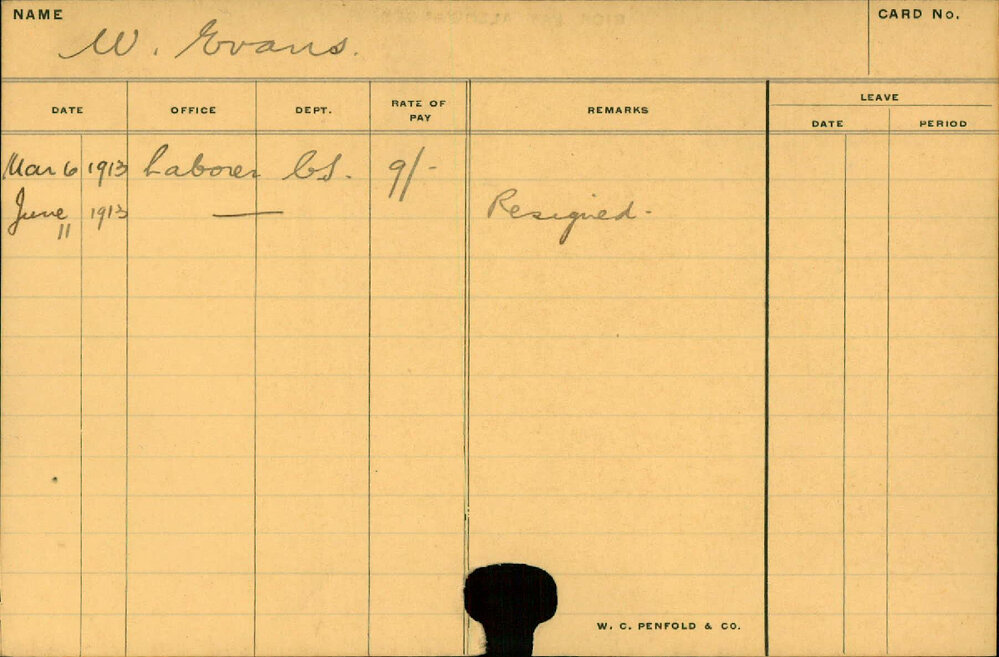 NAME
CARD No.
W. Evans.
DATE OFFICE DEPT. RATE OF PAY REMARKS LEAVE
DATE PERIOD
Mar 6 1913 Laborer CS. 9/-
June 11 1913 — Resigned -
W. C. PENFOLD & CO.